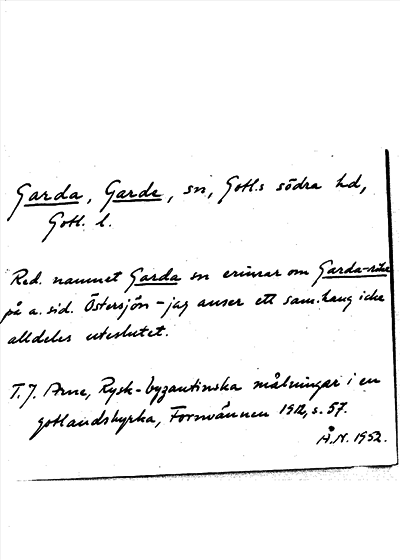 Garda, Garde, sn, Gotl:s södra hd,
Gotl. l.
Red. namnet Garda sn erinrar om Garda-rike
på a. sid. Östersjön - jag anser ett sam.hang icke
alldeles uteslutet.
T. J. Arne, Rysk-byzantinska målningar i en
gotlandskyrka, Fornvännen 1912, s. 57.
Å.N. 1952.